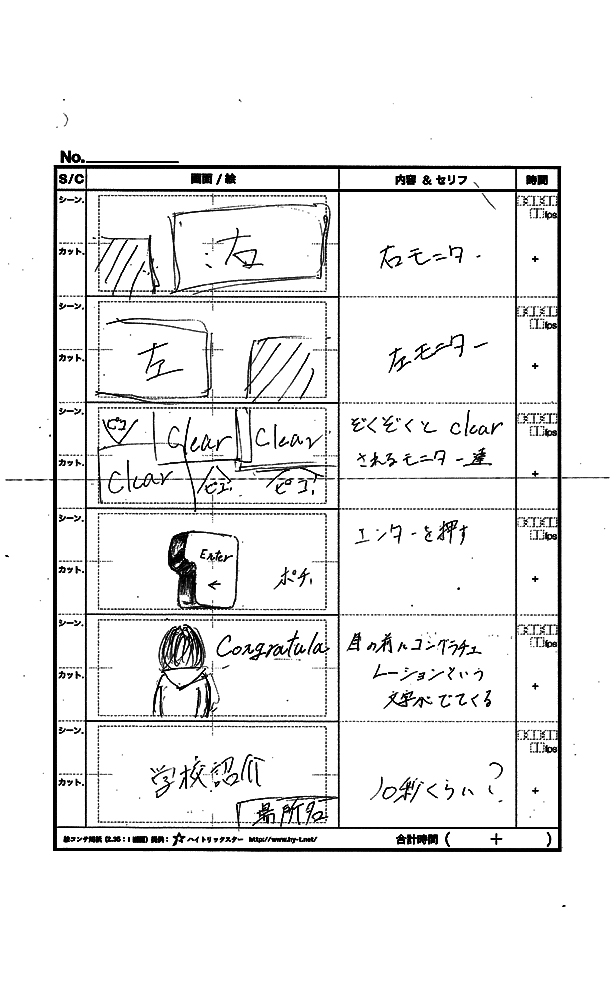 No.
S/C 画面 / 絵 内容 & セリフ 時間
シーン.
カット.
右
右モニター
fps
+
シーン.
カット.
左
左モニター
fps
+
シーン.
カット.
ピコ
Clear
Clear
Clear
ピコ!
ピコ!
ぞくぞくと clear
されるモニター達
fps
+
シーン.
カット.
Enter
←
ポチ
エンターを押す
fps
+
シーン.
カット.
Congratula
目の前にコングラチュ
レーションという
文字がでてくる
fps
+
シーン.
カット.
学校紹介
場所名
10秒くらい?
fps
+
絵コンテ用紙 (2.35:1 横型) 提供: ハイトリックスター http://www.hy-t.net/
合計時間 ( + )